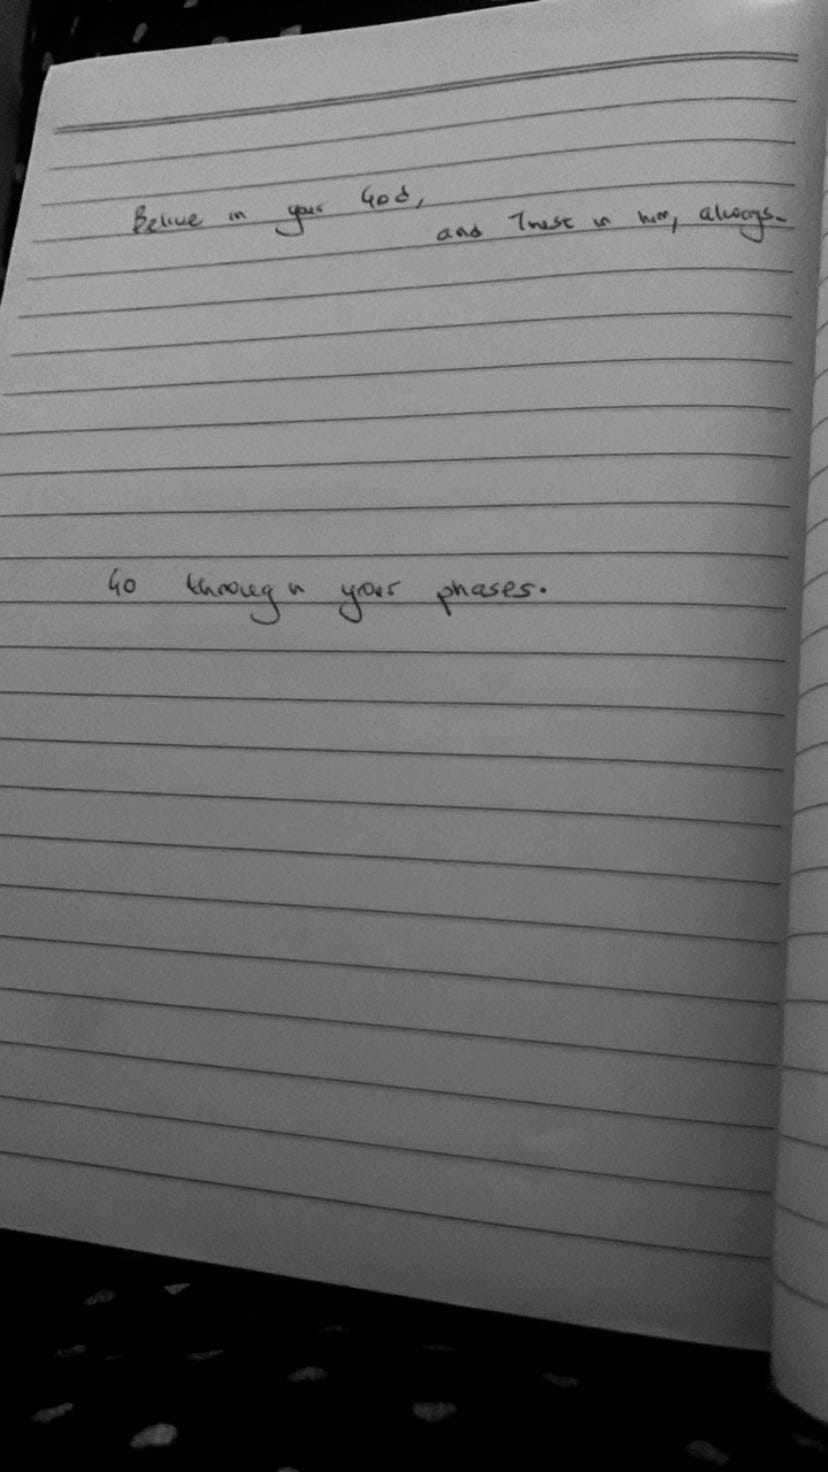 Belive in your God,
and Trust in him, always.
Go through your phases.